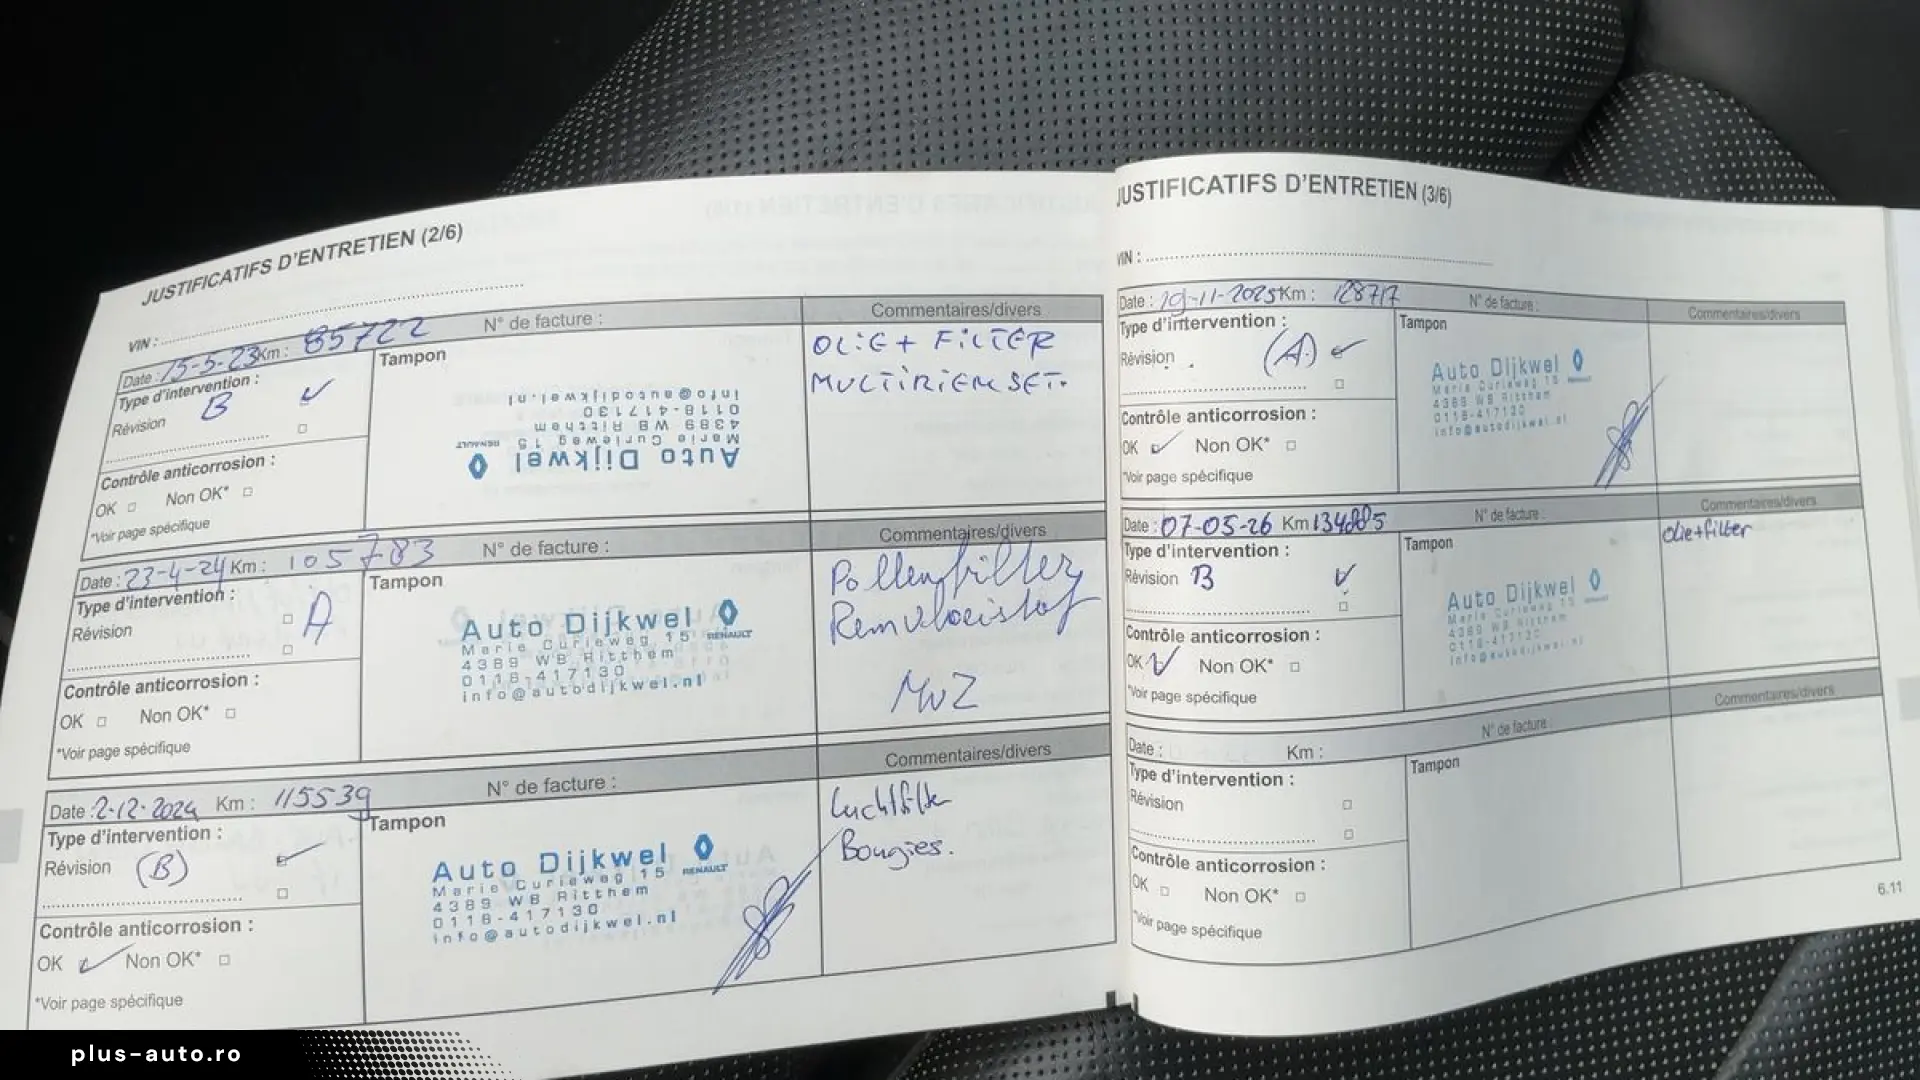 JUSTIFICATIFS D'ENTRETIEN (2/6)
VIN :
Date : 15-5-23 Km : 85722 N° de facture :
Commentaires/divers
Type d'intervention :
Révision B
Tampon
Auto Dijkwel
Marie Curieweg 15 RENAULT
4389 WB Ritthem
0118-417130
info@autodijkwel.nl
OLiE + FiLTER
MULTIRIEM SET.
Contrôle anticorrosion :
OK Non OK*
*Voir page spécifique
Date : 23-4-24 Km : 105783 N° de facture :
Commentaires/divers
Type d'intervention :
Révision A
Tampon
Auto Dijkwel
Marie Curieweg 15 RENAULT
4389 WB Ritthem
0118-417130
info@autodijkwel.nl
Pollenfilter
Remvloeistof
MVZ
Contrôle anticorrosion :
OK Non OK*
*Voir page spécifique
Date : 2-12-2024 Km : 115539 N° de facture :
Commentaires/divers
Type d'intervention :
Révision (B)
Tampon
Auto Dijkwel
Marie Curieweg 15 RENAULT
4389 WB Ritthem
0118-417130
info@autodijkwel.nl
Luchtfilter
Bougies.
Contrôle anticorrosion :
OK Non OK*
*Voir page spécifique
JUSTIFICATIFS D'ENTRETIEN (3/6)
VIN :
Date : 19-11-2025 Km : 128717 N° de facture :
Commentaires/divers
Type d'intervention :
Révision (A)
Tampon
Auto Dijkwel
Marie Curieweg 15 RENAULT
4389 WB Ritthem
0118-417130
info@autodijkwel.nl
Contrôle anticorrosion :
OK Non OK*
*Voir page spécifique
Date : 07-05-26 Km N° de facture :
Commentaires/divers
Type d'intervention :
Révision B
Tampon
Auto Dijkwel
Marie Curieweg 15
4389 WB Ritthem
0118-417130
info@autodijkwel.nl
olie+filter
Contrôle anticorrosion :
OK Non OK*
*Voir page spécifique
Date : Km : N° de facture :
Commentaires/divers
Type d'intervention :
Révision
Tampon
Contrôle anticorrosion :
OK Non OK*
*Voir page spécifique
6.11
plus-auto.ro